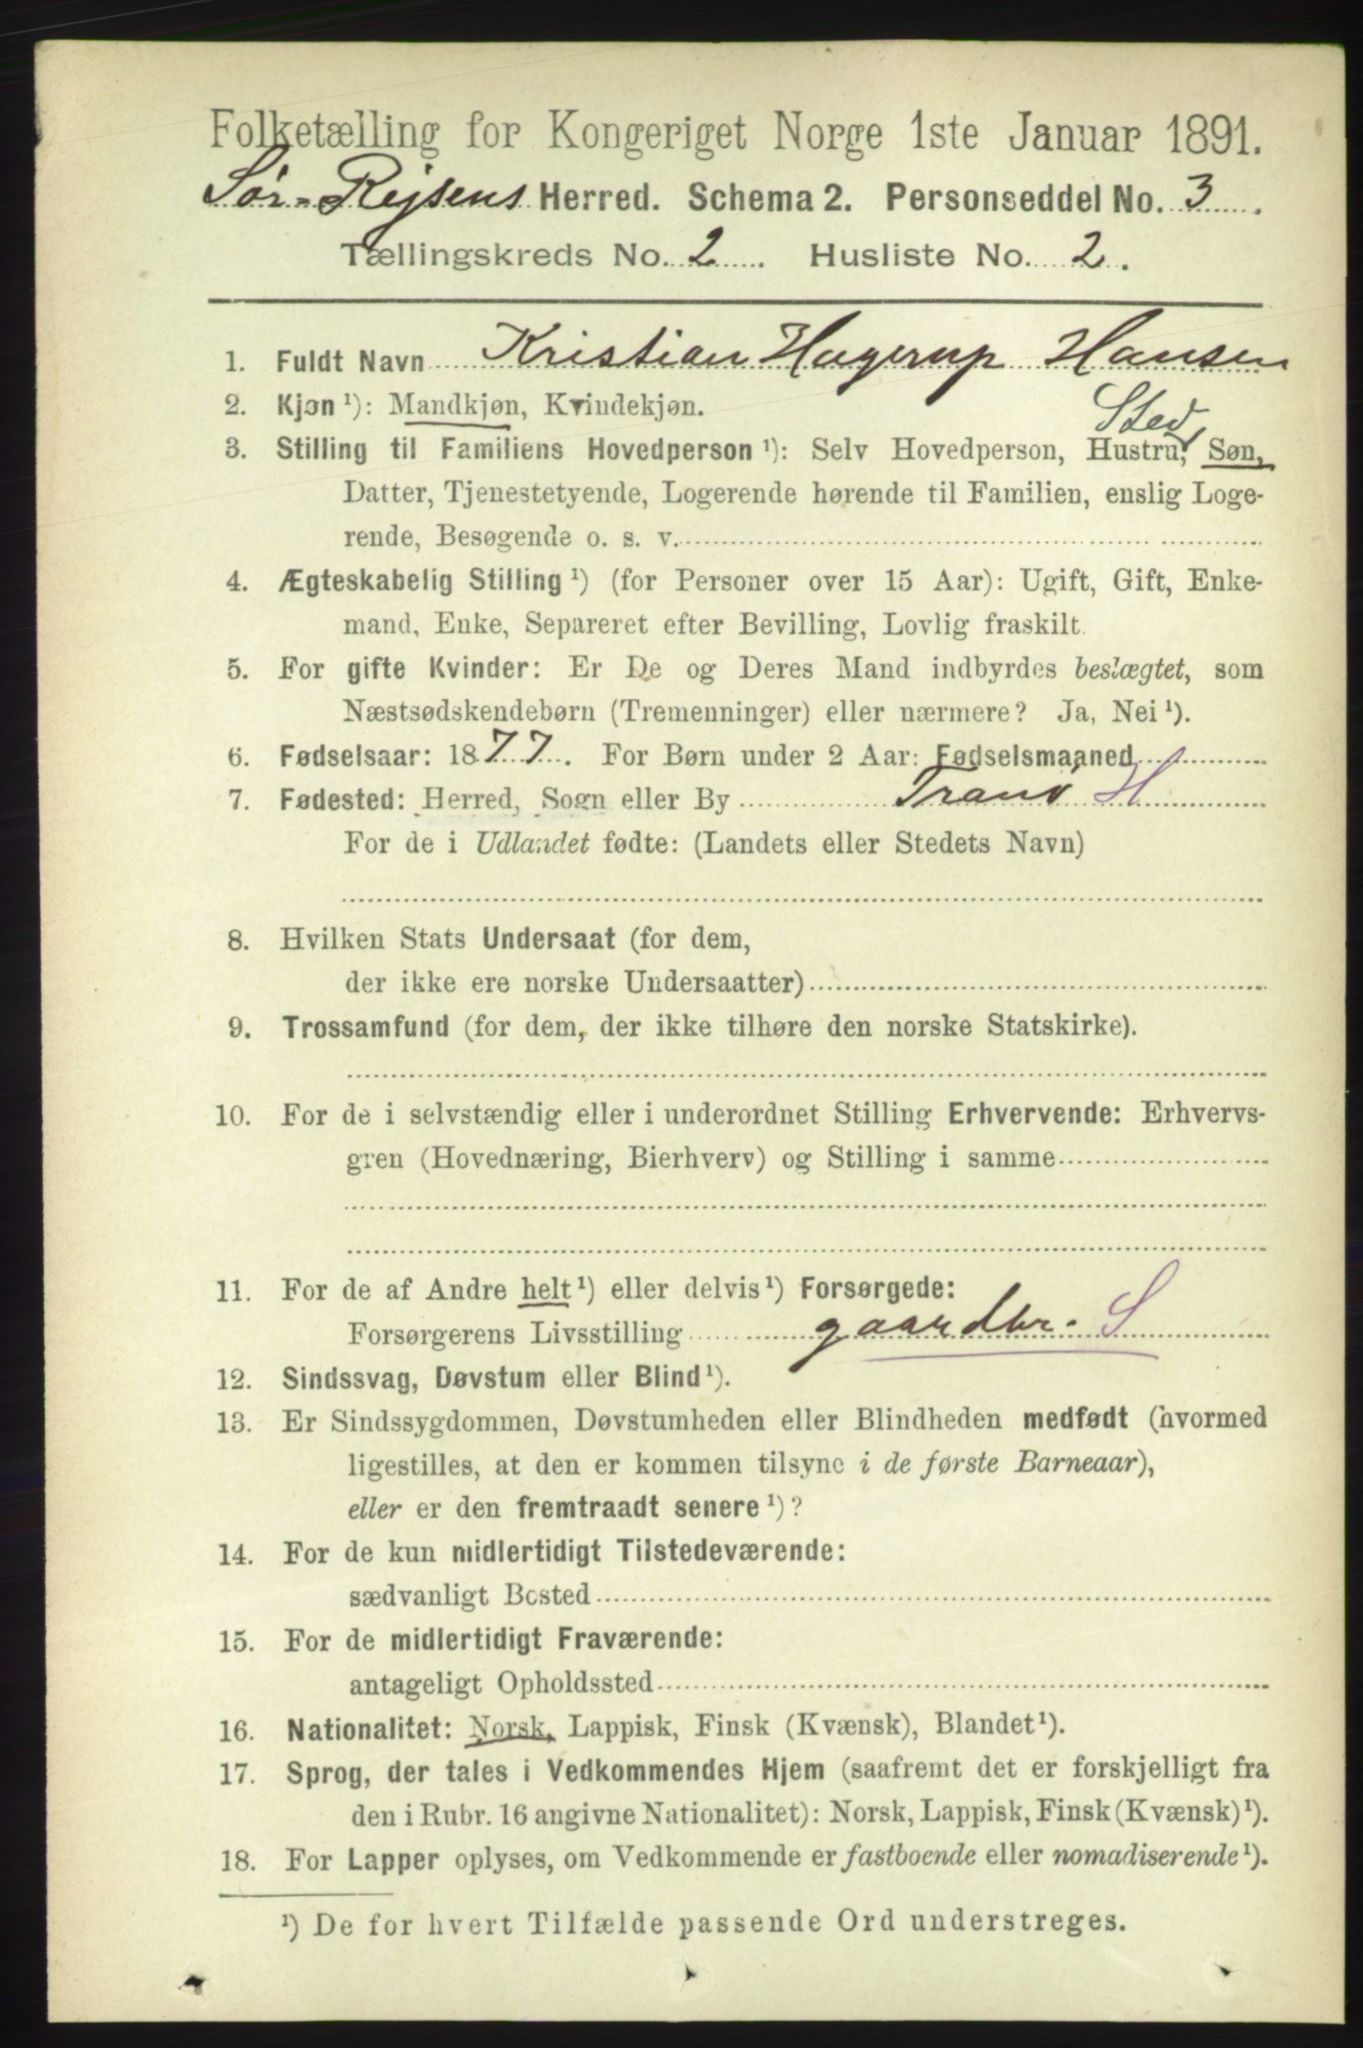 Folketælling for Kongeriget Norge 1ste Januar 1891.
Sør-Rejsens Herred. Schema 2. Personseddel No. 3.
Tællingskreds No. 2. Husliste No. 2.
1. Fuldt Navn Kristian Hagerup Hansen
2. Kjøn ¹): Mandkjøn, Kvindekjøn.
Sted
3. Stilling til Familiens Hovedperson ¹): Selv Hovedperson, Hustru, Søn,
Datter, Tjenestetyende, Logerende hørende til Familien, enslig Loge-
rende, Besøgende o. s. v.
4. Ægteskabelig Stilling ¹) (for Personer over 15 Aar): Ugift, Gift, Enke-
mand, Enke, Separeret efter Bevilling, Lovlig fraskilt.
5. For gifte Kvinder: Er De og Deres Mand indbyrdes beslægtet, som
Næstsødskendebørn (Tremenninger) eller nærmere? Ja, Nei ¹).
6. Fødselsaar: 1877. For Børn under 2 Aar: Fødselsmaaned
7. Fødested: Herred, Sogn eller By Tranø H
For de i Udlandet fødte: (Landets eller Stedets Navn)
8. Hvilken Stats Undersaat (for dem,
der ikke ere norske Undersaatter)
9. Trossamfund (for dem, der ikke tilhøre den norske Statskirke).
10. For de i selvstændig eller i underordnet Stilling Erhvervende: Erhvervs-
gren (Hovednæring, Bierhverv) og Stilling i samme
11. For de af Andre helt ¹) eller delvis ¹) Forsørgede:
Forsørgerens Livsstilling gaardbr. S
12. Sindssvag, Døvstum eller Blind ¹).
13. Er Sindssygdommen, Døvstumheden eller Blindheden medfødt (hvormed
ligestilles, at den er kommen tilsyne i de første Barneaar),
eller er den fremtraadt senere ¹)?
14. For de kun midlertidigt Tilstedeværende:
sædvanligt Bosted
15. For de midlertidigt Fraværende:
antageligt Opholdssted
16. Nationalitet: Norsk, Lappisk, Finsk (Kvænsk), Blandet ¹).
17. Sprog, der tales i Vedkommendes Hjem (saafremt det er forskjelligt fra
den i Rubr. 16 angivne Nationalitet): Norsk, Lappisk, Finsk (Kvænsk) ¹).
18. For Lapper oplyses, om Vedkommende er fastboende eller nomadiserende ¹).
¹) De for hvert Tilfælde passende Ord understreges.